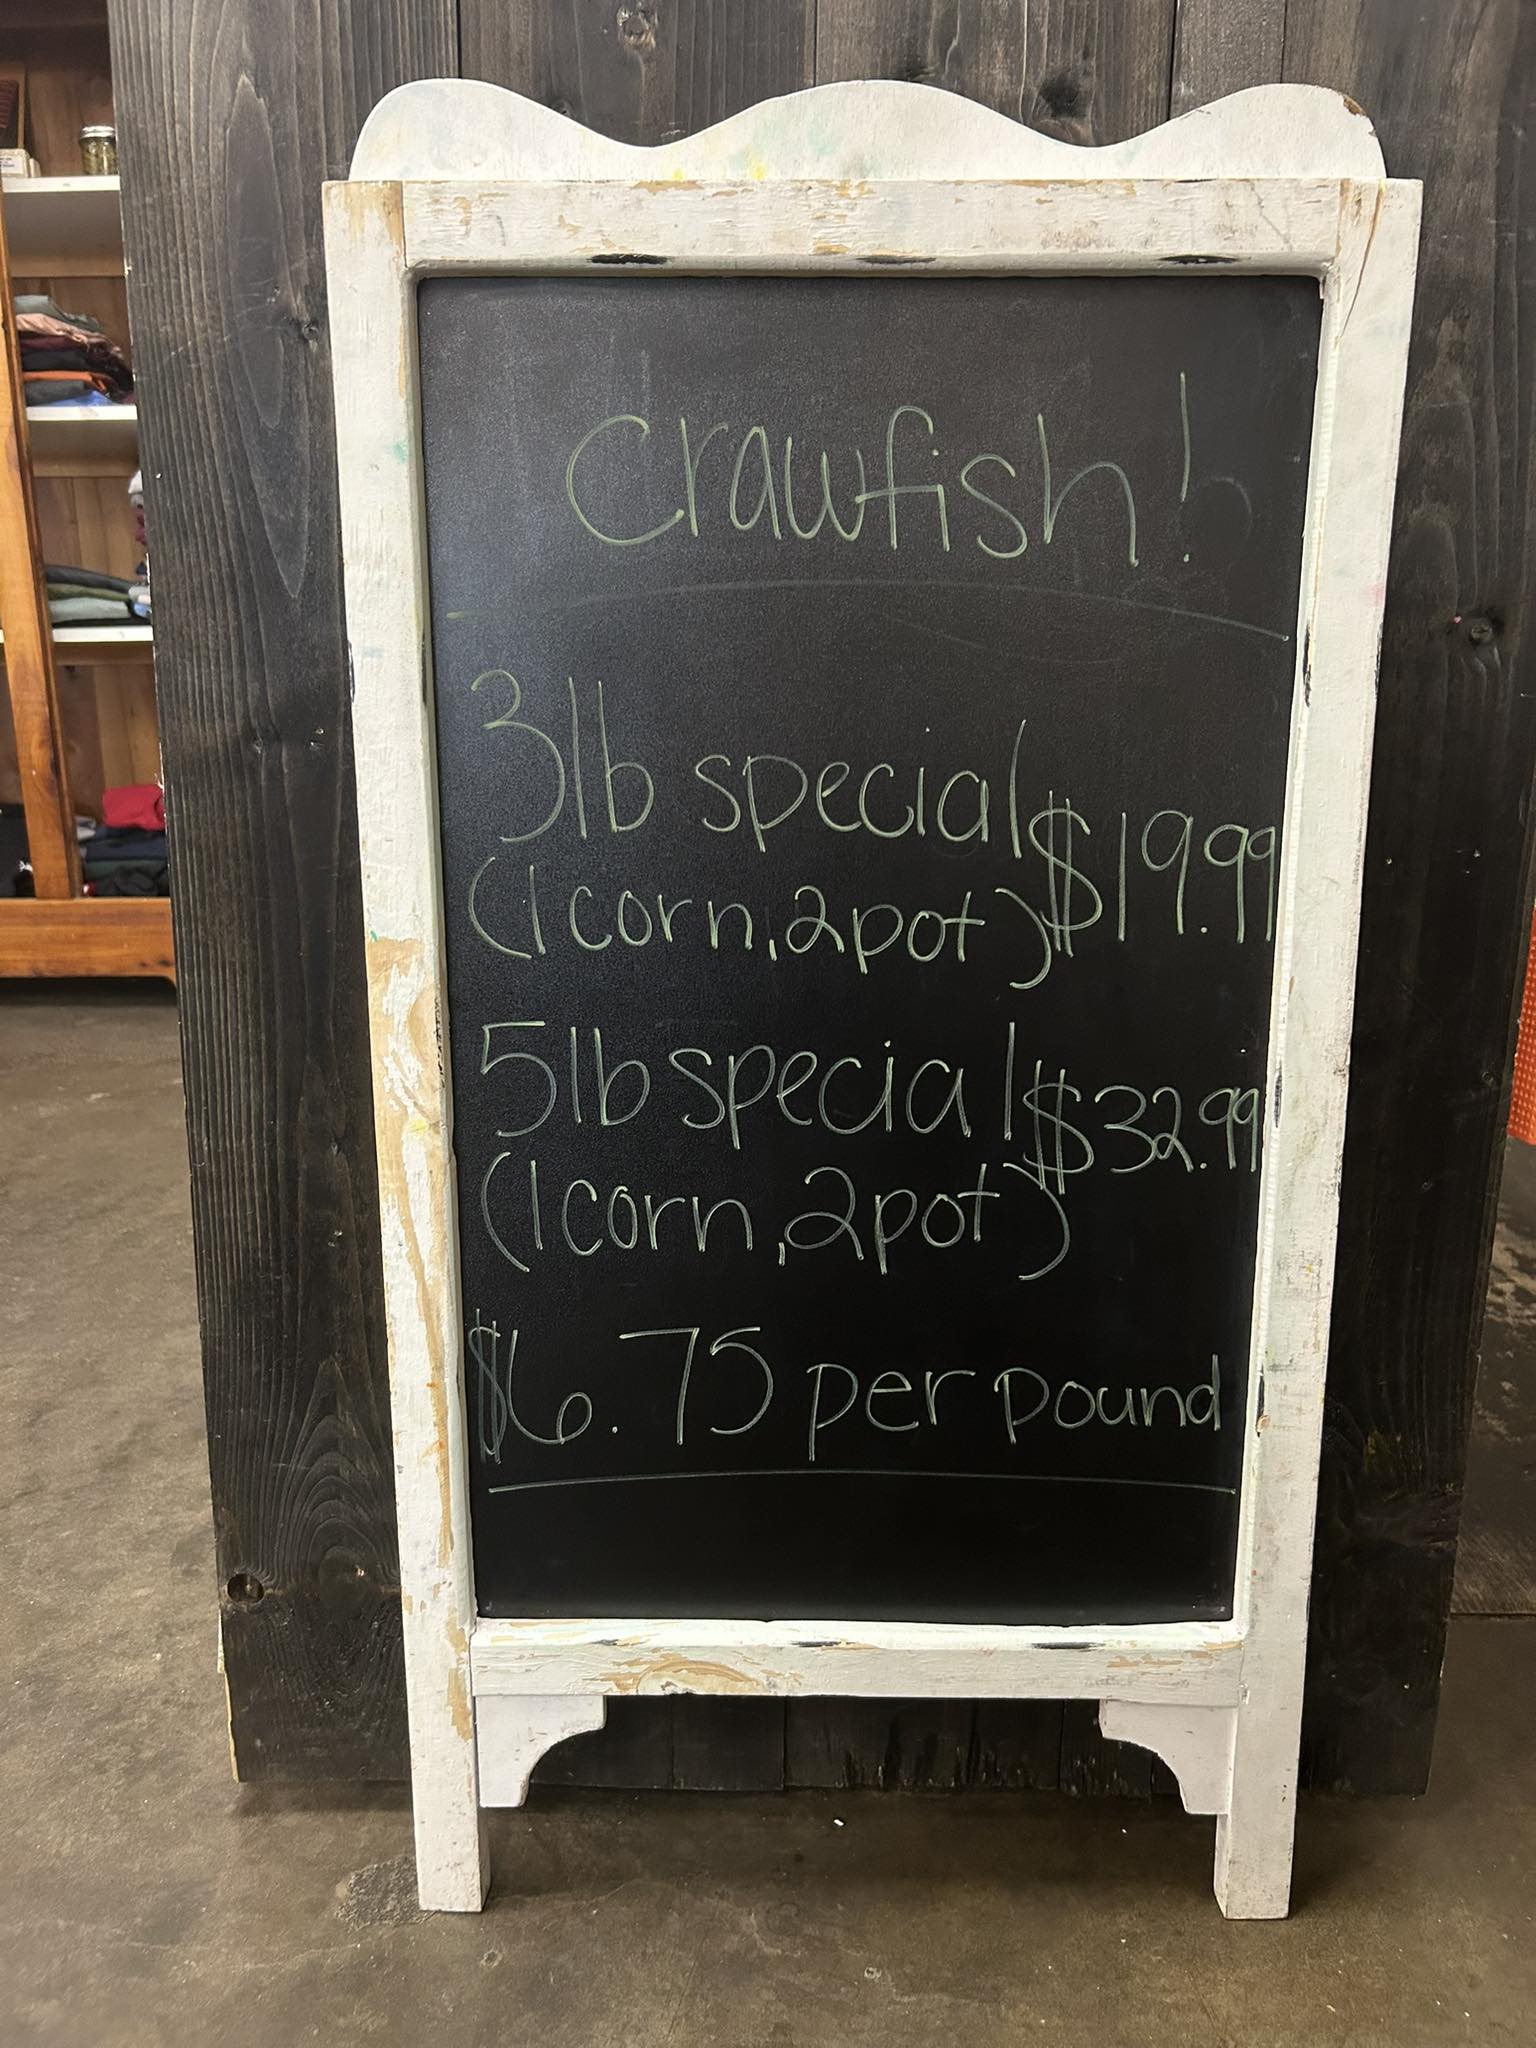 Crawfish!
3lb special $19.99
(1 corn, 2 pot)
5lb special $32.99
(1 corn, 2 pot)
$6.75 per pound